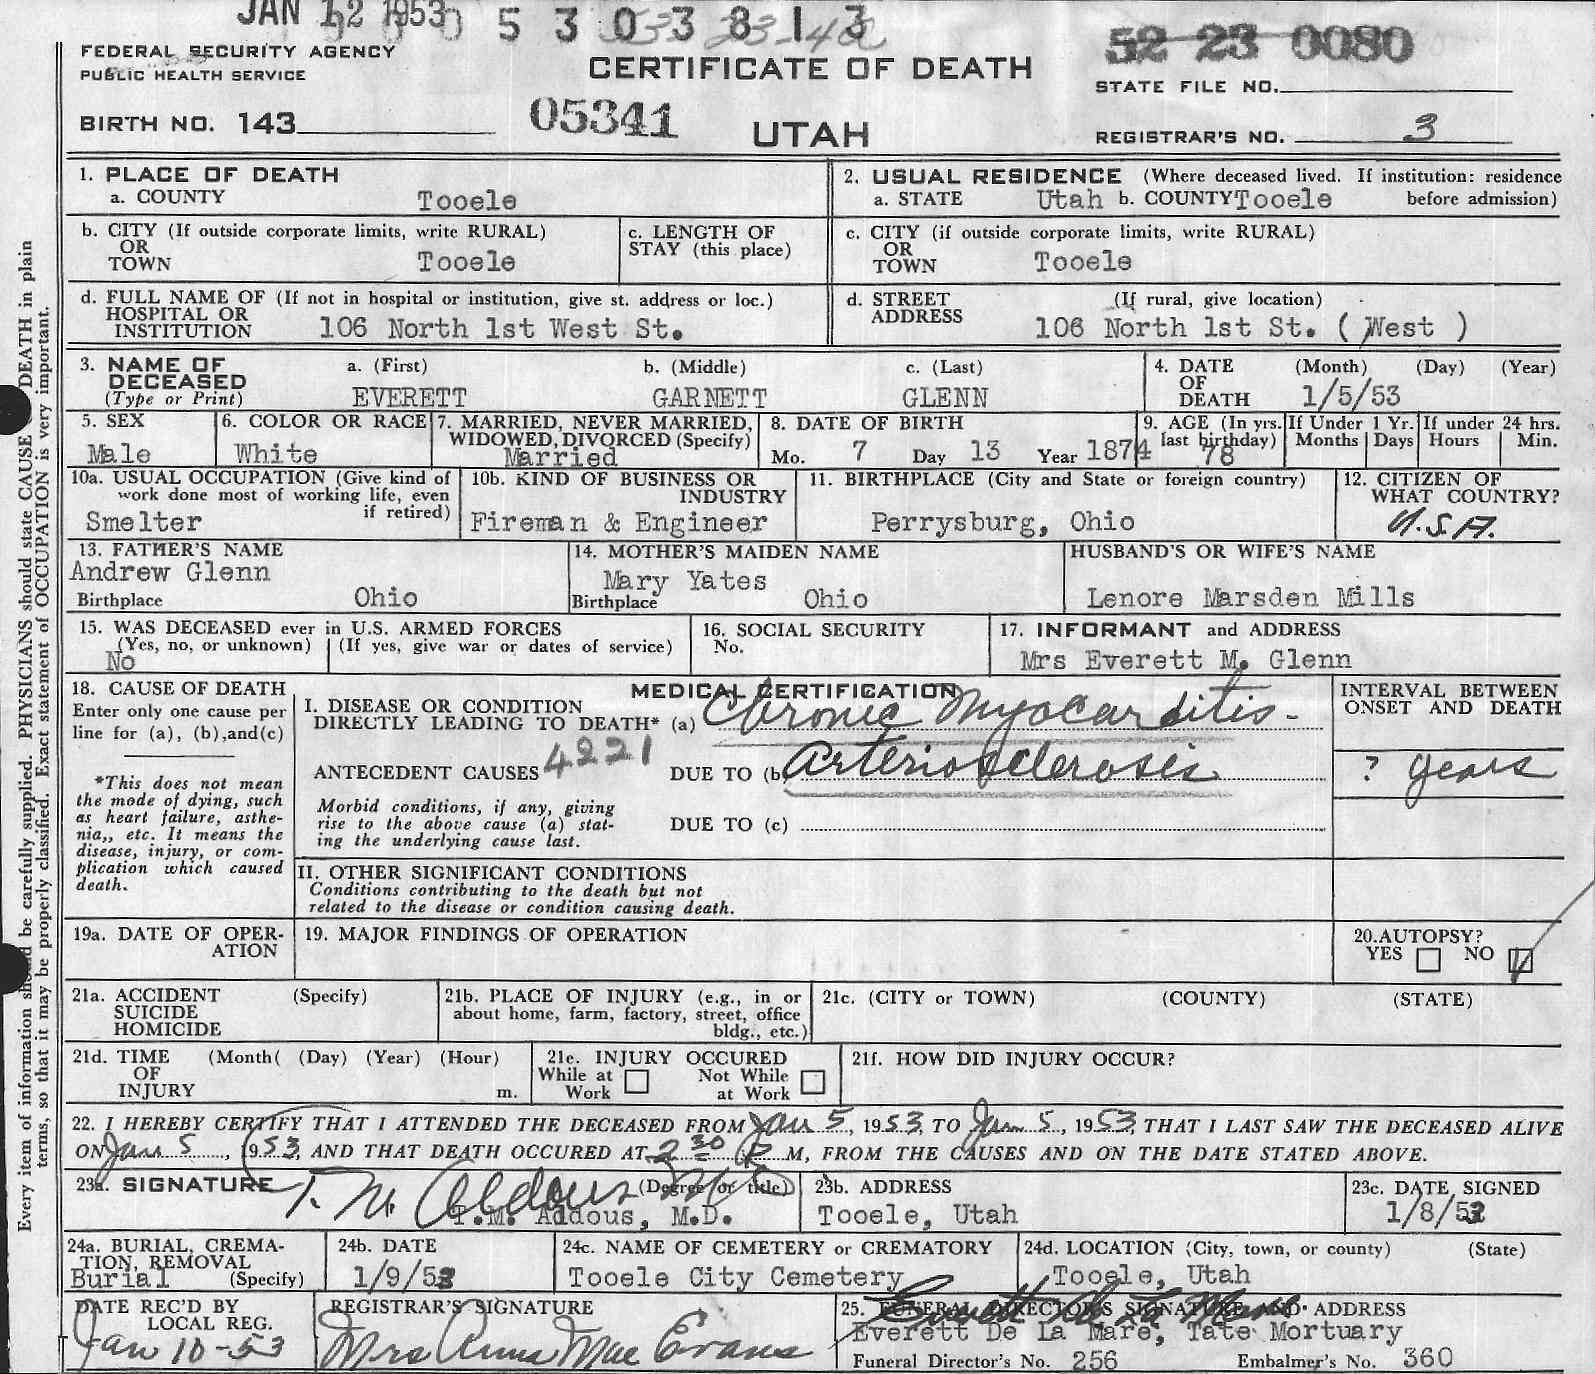 JAN 12 1953
5 3 0 3 8 1 3
52 23 0080
FEDERAL SECURITY AGENCY
PUBLIC HEALTH SERVICE
CERTIFICATE OF DEATH
STATE FILE NO.
BIRTH NO. 143
05341
UTAH
REGISTRAR'S NO. 3
1. PLACE OF DEATH
a. COUNTY Tooele
2. USUAL RESIDENCE (Where deceased lived. If institution: residence before admission)
a. STATE Utah b. COUNTY Tooele
b. CITY (If outside corporate limits, write RURAL)
OR
TOWN Tooele
c. LENGTH OF
STAY (this place)
c. CITY (if outside corporate limits, write RURAL)
OR
TOWN Tooele
d. FULL NAME OF (If not in hospital or institution, give st. address or loc.)
HOSPITAL OR
INSTITUTION 106 North 1st West St.
d. STREET (If rural, give location)
ADDRESS 106 North 1st St. ( West )
3. NAME OF
DECEASED
(Type or Print)
a. (First) b. (Middle) c. (Last)
EVERETT GARNETT GLENN
4. DATE (Month) (Day) (Year)
OF
DEATH 1/5/53
5. SEX
Male
6. COLOR OR RACE
White
7. MARRIED, NEVER MARRIED,
WIDOWED, DIVORCED (Specify)
Married
8. DATE OF BIRTH
Mo. 7 Day 13 Year 1874
9. AGE (In yrs.
last birthday)
78
If Under 1 Yr.
Months Days
If under 24 hrs.
Hours Min.
10a. USUAL OCCUPATION (Give kind of
work done most of working life, even
if retired)
Smelter
10b. KIND OF BUSINESS OR
INDUSTRY
Fireman & Engineer
11. BIRTHPLACE (City and State or foreign country)
Perrysburg, Ohio
12. CITIZEN OF
WHAT COUNTRY?
U.S.A.
13. FATHER'S NAME
Andrew Glenn
Birthplace Ohio
14. MOTHER'S MAIDEN NAME
Mary Yates
Birthplace Ohio
HUSBAND'S OR WIFE'S NAME
Lenore Marsden Mills
15. WAS DECEASED ever in U.S. ARMED FORCES
(Yes, no, or unknown) (If yes, give war or dates of service)
No
16. SOCIAL SECURITY
No.
17. INFORMANT and ADDRESS
Mrs Everett M. Glenn
18. CAUSE OF DEATH
Enter only one cause per
line for (a), (b),and(c)
*This does not mean
the mode of dying, such
as heart failure, asthe-
nia,, etc. It means the
disease, injury, or com-
plication which caused
death.
MEDICAL CERTIFICATION
I. DISEASE OR CONDITION
DIRECTLY LEADING TO DEATH* (a) Chronic Myocarditis-
ANTECEDENT CAUSES 4221 DUE TO (b) Arteriosclerosis
Morbid conditions, if any, giving
rise to the above cause (a) stat-
ing the underlying cause last.
DUE TO (c)
II. OTHER SIGNIFICANT CONDITIONS
Conditions contributing to the death but not
related to the disease or condition causing death.
INTERVAL BETWEEN
ONSET AND DEATH
? years
19a. DATE OF OPER-
ATION
19. MAJOR FINDINGS OF OPERATION
20.AUTOPSY?
YES NO
21a. ACCIDENT (Specify)
SUICIDE
HOMICIDE
21b. PLACE OF INJURY (e.g., in or
about home, farm, factory, street, office
bldg., etc.)
21c. (CITY or TOWN) (COUNTY) (STATE)
21d. TIME (Month( (Day) (Year) (Hour)
OF
INJURY m.
21e. INJURY OCCURED
While at Not While
Work at Work
21f. HOW DID INJURY OCCUR?
22. I HEREBY CERTIFY THAT I ATTENDED THE DECEASED FROM Jan 5, 1953, TO Jan 5, 1953, THAT I LAST SAW THE DECEASED ALIVE
ON Jan 5, 1953, AND THAT DEATH OCCURED AT 2 30 P M, FROM THE CAUSES AND ON THE DATE STATED ABOVE.
23a. SIGNATURE T. M. Aldous MD (Degree or title)
T.M. Addous, M.D.
23b. ADDRESS
Tooele, Utah
23c. DATE SIGNED
1/8/53
24a. BURIAL, CREMA-
TION, REMOVAL
Burial (Specify)
24b. DATE
1/9/53
24c. NAME OF CEMETERY or CREMATORY
Tooele City Cemetery
24d. LOCATION (City, town, or county) (State)
Tooele, Utah
DATE REC'D BY
LOCAL REG.
Jan 10-53
REGISTRAR'S SIGNATURE
Mrs Anna Mae Evans
25. FUNERAL DIRECTOR'S SIGNATURE AND ADDRESS
Everett De La Mare
Everett De La Mare, Tate Mortuary
Funeral Director's No. 256 Embalmer's No. 360
Every item of information should be carefully supplied. PHYSICIANS should state CAUSE OF DEATH in plain
terms, so that it may be properly classified. Exact statement of OCCUPATION is very important.